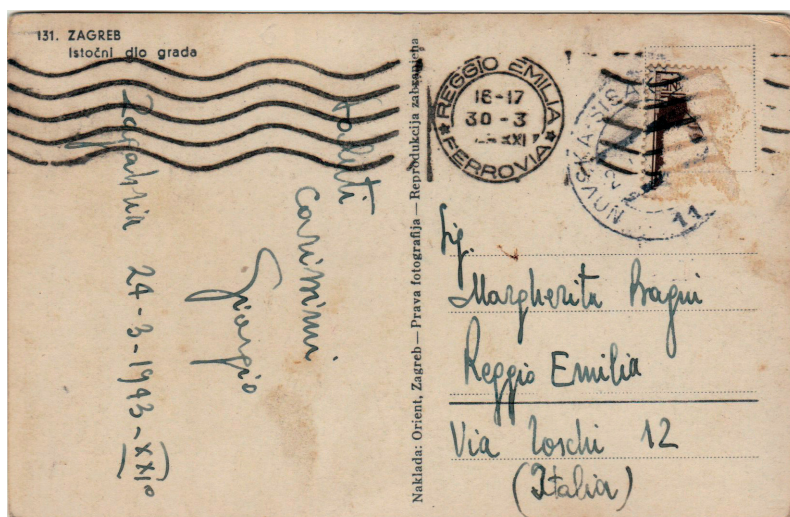 131. ZAGREB
Istočni dio grada
Saluti
carissimi
Giorgio
Zagabria 24-3-1943-XXI°
Naklada: Orient, Zagreb — Prava fotografija — Reprodukcija zabranjena
REGGIO EMILIA
16-17
30-3
XXI
★ FERROVIA ★
11
Sig.
Margherita Bagni
Reggio Emilia
Via Toschi 12
(Italia)